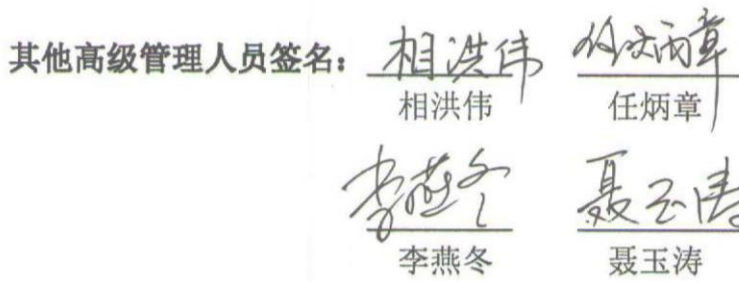 其他高级管理人员签名: 相洪伟 任炳章
相洪伟 任炳章
李燕冬 聂玉涛
李燕冬 聂玉涛